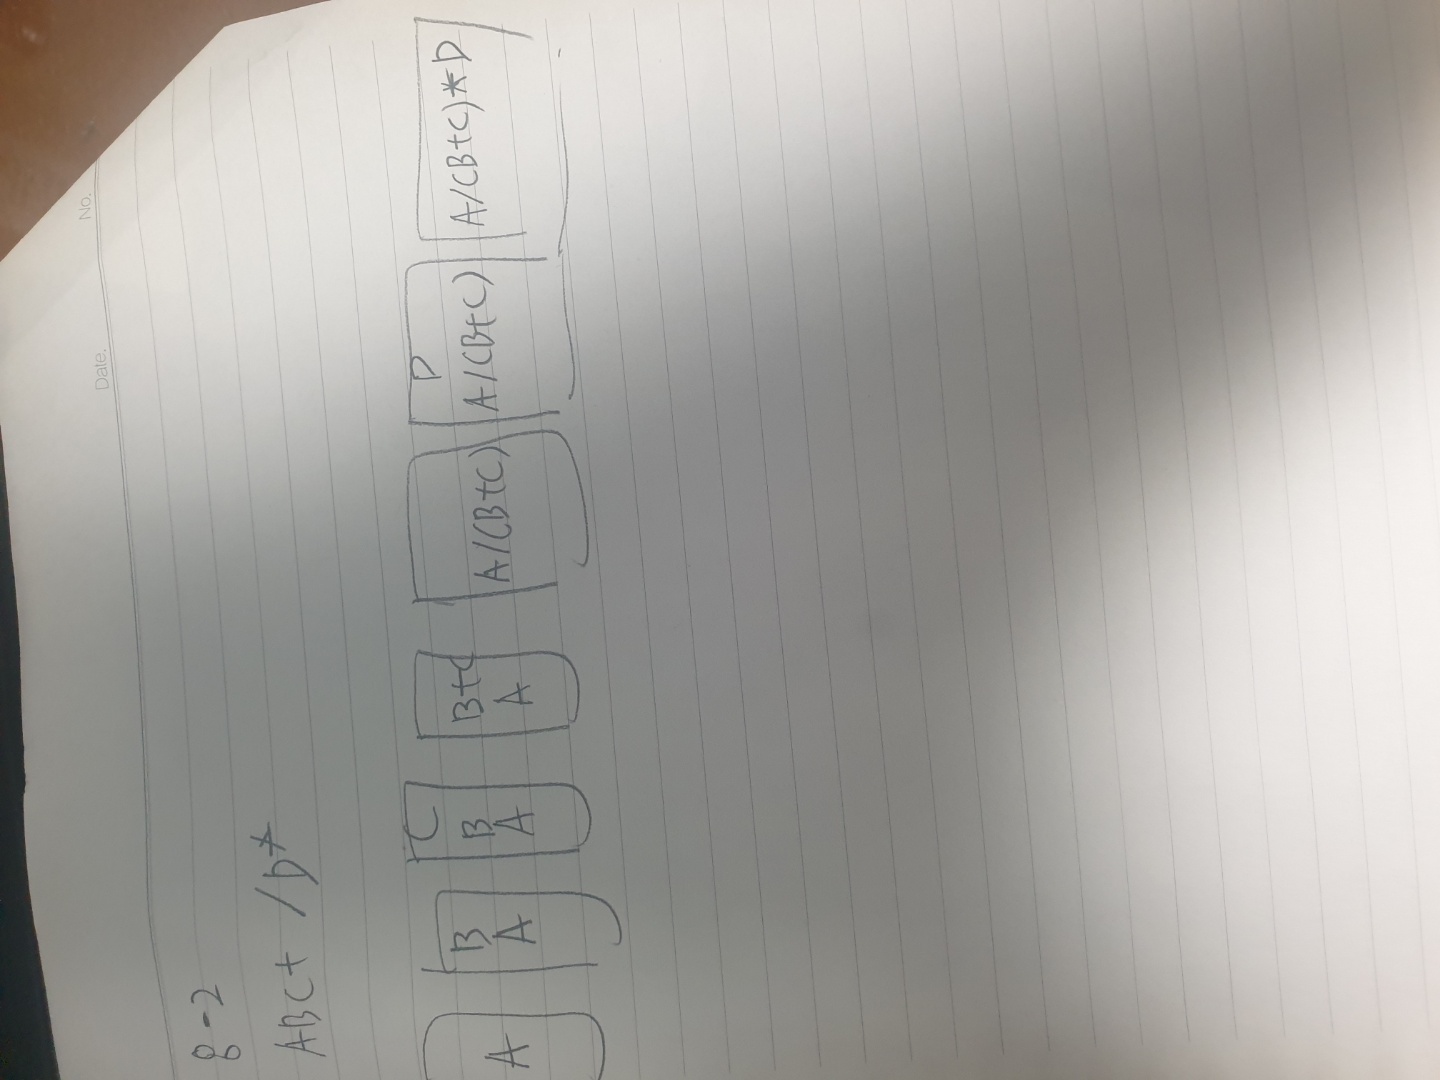 No.
Date.
8-2
ABC+/D*
A
B
A
C
B
A
B+C
A
A/(B+C)
D
A/(B+C)
A/(B+C)*D